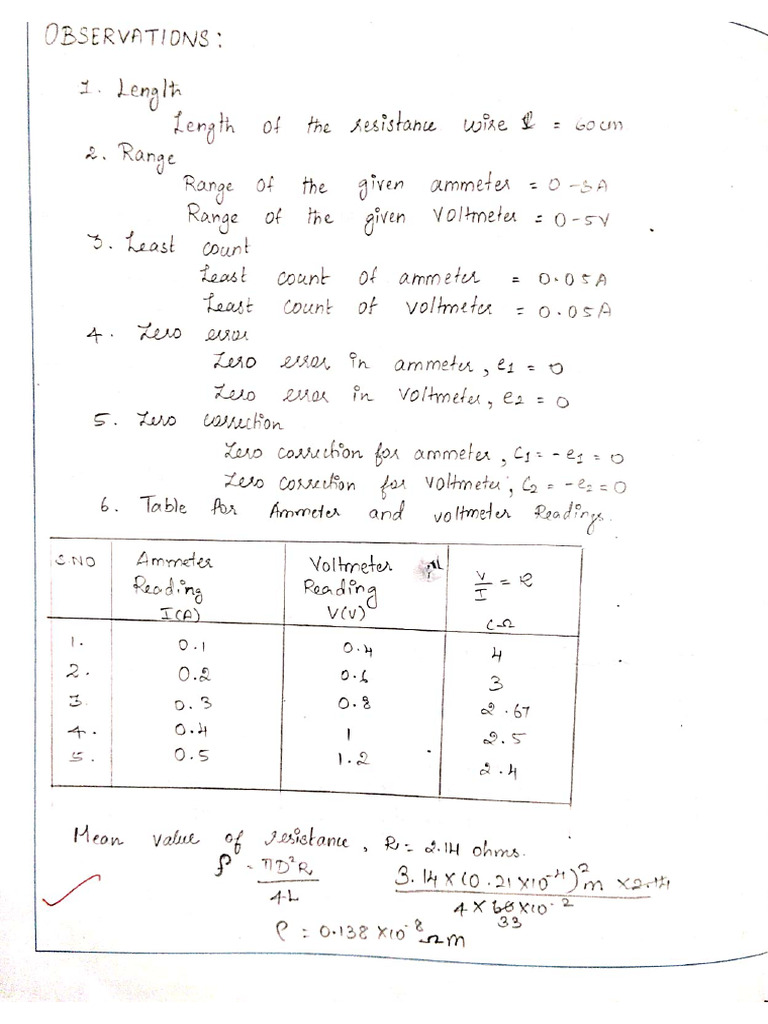 OBSERVATIONS:
1. Length
Length of the resistance wire l = 60cm
2. Range
Range of the given ammeter = 0-3A
Range of the given voltmeter = 0-5V
3. Least count
Least count of ammeter = 0.05A
Least count of voltmeter = 0.05A
4. Zero error
Zero error in ammeter, e1 = 0
Zero error in voltmeter, e2 = 0
5. Zero correction
Zero correction for ammeter, C1 = -e1 = 0
Zero correction for voltmeter, C2 = -e2 = 0
6. Table for Ammeter and voltmeter Readings.
S.NO Ammeter Reading I(A) Voltmeter Reading V(V) V/I = R Ω
1. 0.1 0.4 4
2. 0.2 0.6 3
3. 0.3 0.8 2.67
4. 0.4 1 2.5
5. 0.5 1.2 2.4
Mean value of resistance, R = 2.14 ohms.
ρ = πD²R / 4L 3.14×(0.21×10⁻⁴)²m ×2.14 / 4×60×10⁻²
33
ρ = 0.138×10⁻⁸ Ωm